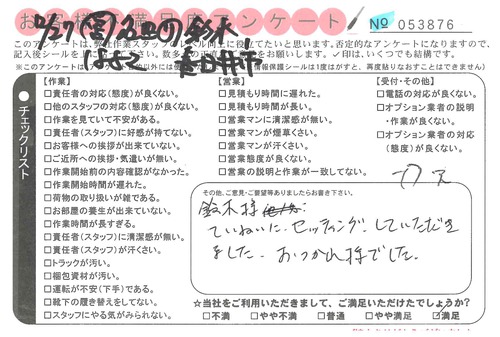 お客様満足度アンケート
No 053876
このアンケートは、弊社作業スタッフのレベル向上に役立てたいと思います。否定的なアンケートになりますので、
記入後シールを上に 数多くの正直 ✓印は、いくつでも結構です。
※このアンケートは 情報保護シールは1度はがすと、再度貼りなおすことはできません)
12/27 名西の鈴木
春日井市
チェックリスト
【作業】
□責任者の対応(態度)が良くない。
□他のスタッフの対応(態度)が良くない。
□作業を見ていて不安がある。
□責任者(スタッフ)に好感が持てない。
□お客様への挨拶が出来ていない。
□ご近所への挨拶・気遣いが無い。
□作業開始前の内容確認がなかった。
□作業開始時間が遅れた。
□荷物の取り扱いが雑である。
□お部屋の養生が出来ていない。
□作業時間が長すぎる。
□責任者(スタッフ)に清潔感が無い。
□責任者(スタッフ)が汗くさい。
□トラックが汚い。
□梱包資材が汚い。
□運転が不安(下手)である。
□靴下の履き替えをしてない。
□スタッフにやる気がみられない。
【営業】
□見積もり時間に遅れた。
□見積もり時間が長い。
□営業マンに清潔感が無い。
□営業マンが煙草くさい。
□営業マンが汗くさい。
□営業態度が良くない。
□営業の説明と作業が一致してない。
【受付・その他】
□電話の対応が良くない。
□オプション業者の説明
・作業が良くない。
□オプション業者の対応
(態度)が良くない。
その他、ご意見・ご要望等ありましたらお書き下さい。
鈴木様
ていねいに、セッティングしていただき
ました。おつかれ様でした。
☆当社をご利用いただきまして、ご満足いただけたでしょうか?
□不満 □やや不満 □普通 □やや満足 ☑満足